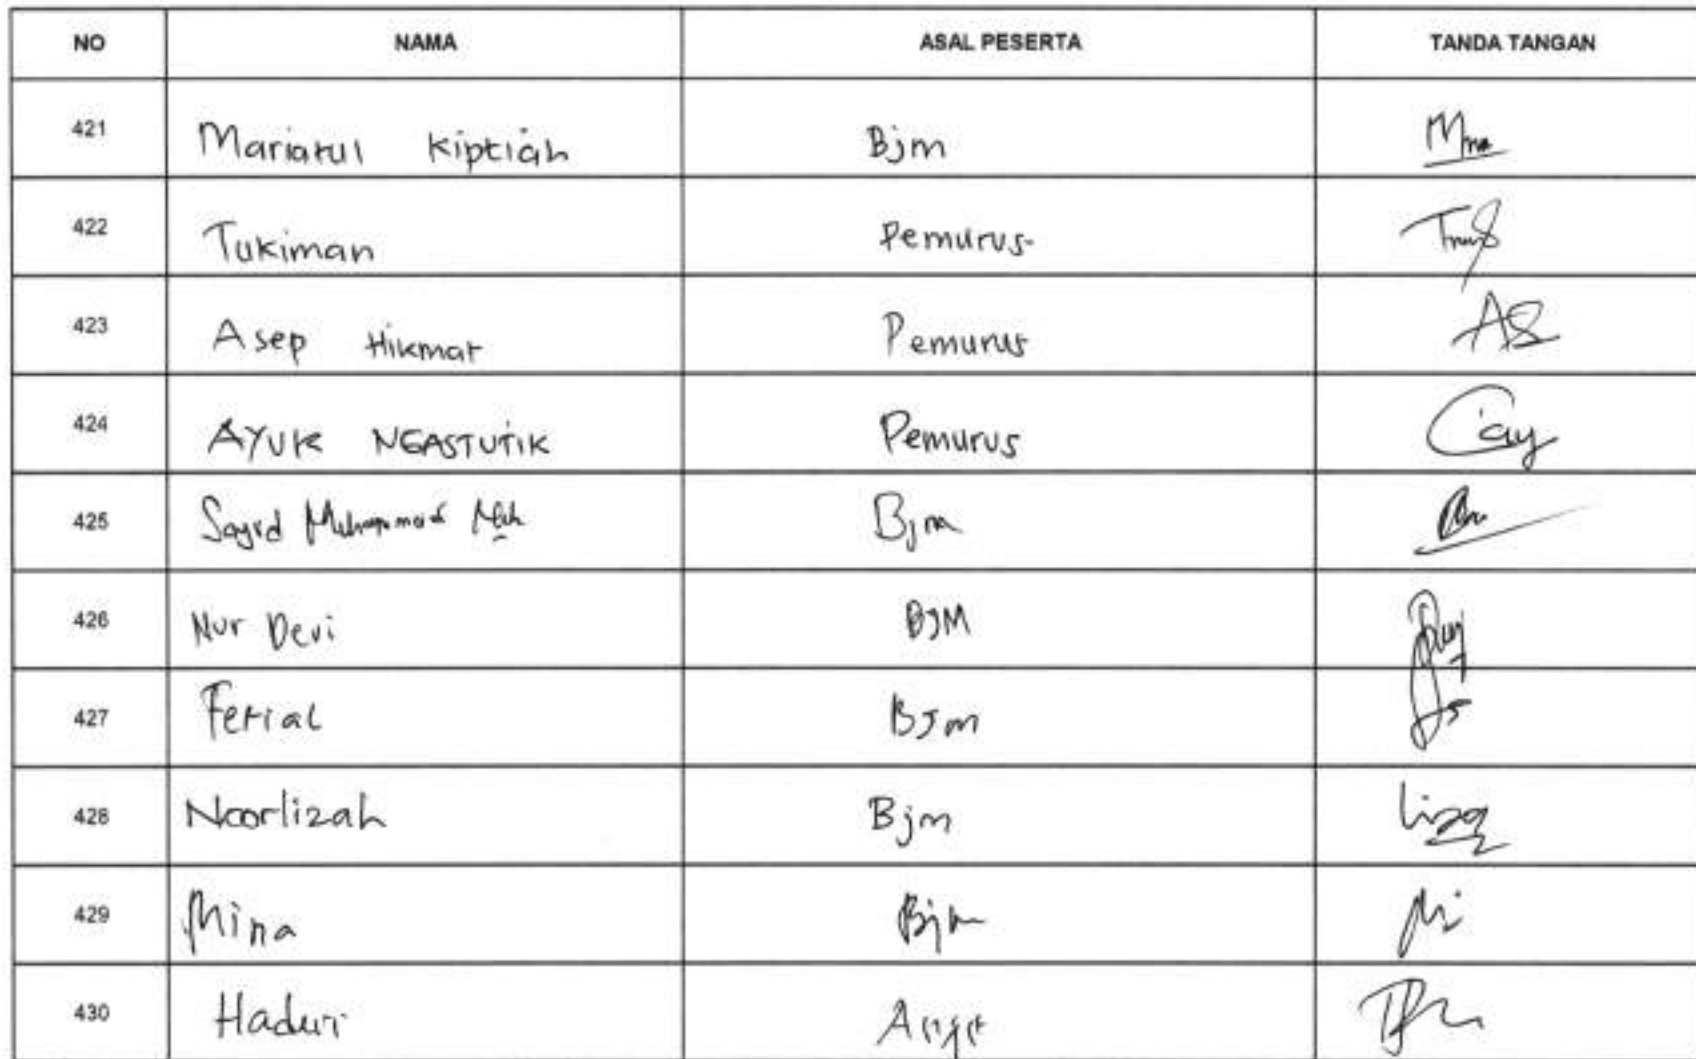 NO NAMA ASAL PESERTA TANDA TANGAN
421 Mariatul Kiptiah Bjm
422 Tukiman Pemurus
423 Asep Hikmat Pemurus
424 AYUK NGASTUTIK Pemurus
425 Sayid Muhammad Bjm
426 Nur Devi BJM
427 Ferial BJm
428 Noorlizah Bjm Liza
429 Mina Bjm Mi
430 Haduri